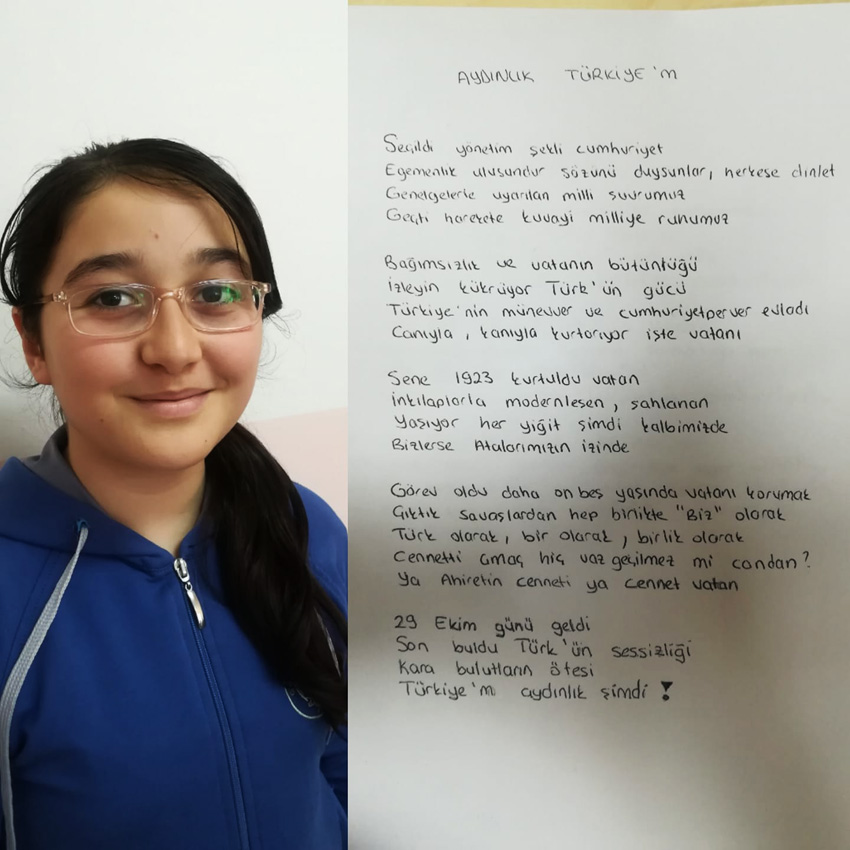 AYDINLIK TÜRKİYE'm
Seçildi yönetim şekli cumhuriyet
Egemenlik ulusundur sözünü duysunlar, herkese dinlet
Genelgelerle uyarılan milli şuurumuz
Geçti harekete kuvayi milliye ruhumuz
Bağımsızlık ve vatanın bütünlüğü
İzleyin kükrüyor Türk'ün gücü
Türkiye'nin münevver ve cumhuriyetperver evladı
Canıyla, kanıyla kurtarıyor işte vatanı
Sene 1923 kurtuldu vatan
İnkılaplarla modernleşen, şahlanan
Yaşıyor her yiğit şimdi kalbimizde
Bizlerse Atalarımızın izinde
Görev oldu daha on beş yaşında vatanı korumak
Çıktık savaşlardan hep birlikte "Biz" olarak
Türk olarak, bir olarak, birlik olarak
Cennetti amaç hiç vaz geçilmez mi candan?
Ya Ahiretin cenneti ya cennet vatan
29 Ekim günü geldi
Son buldu Türk'ün sessizliği
Kara bulutların ötesi
Türkiye'm aydınlık şimdi!